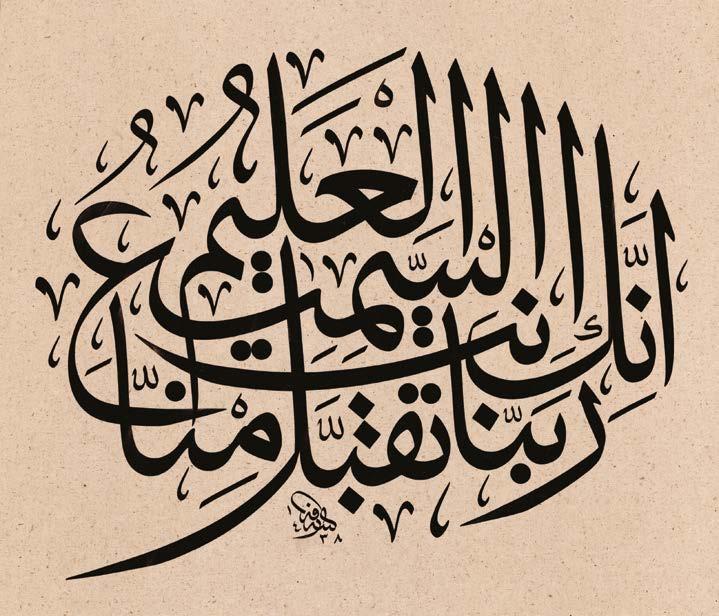 ربنا تقبل منا
انك انت السميع العليم
١٤٣٨